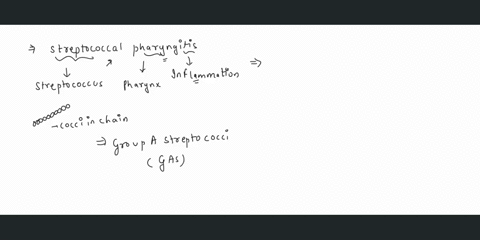 ⇒ streptococcal pharyngitis ⇒
streptococcus pharynx Inflammation
→ cocci in chain
⇒ Group A streptococci
(GAS)